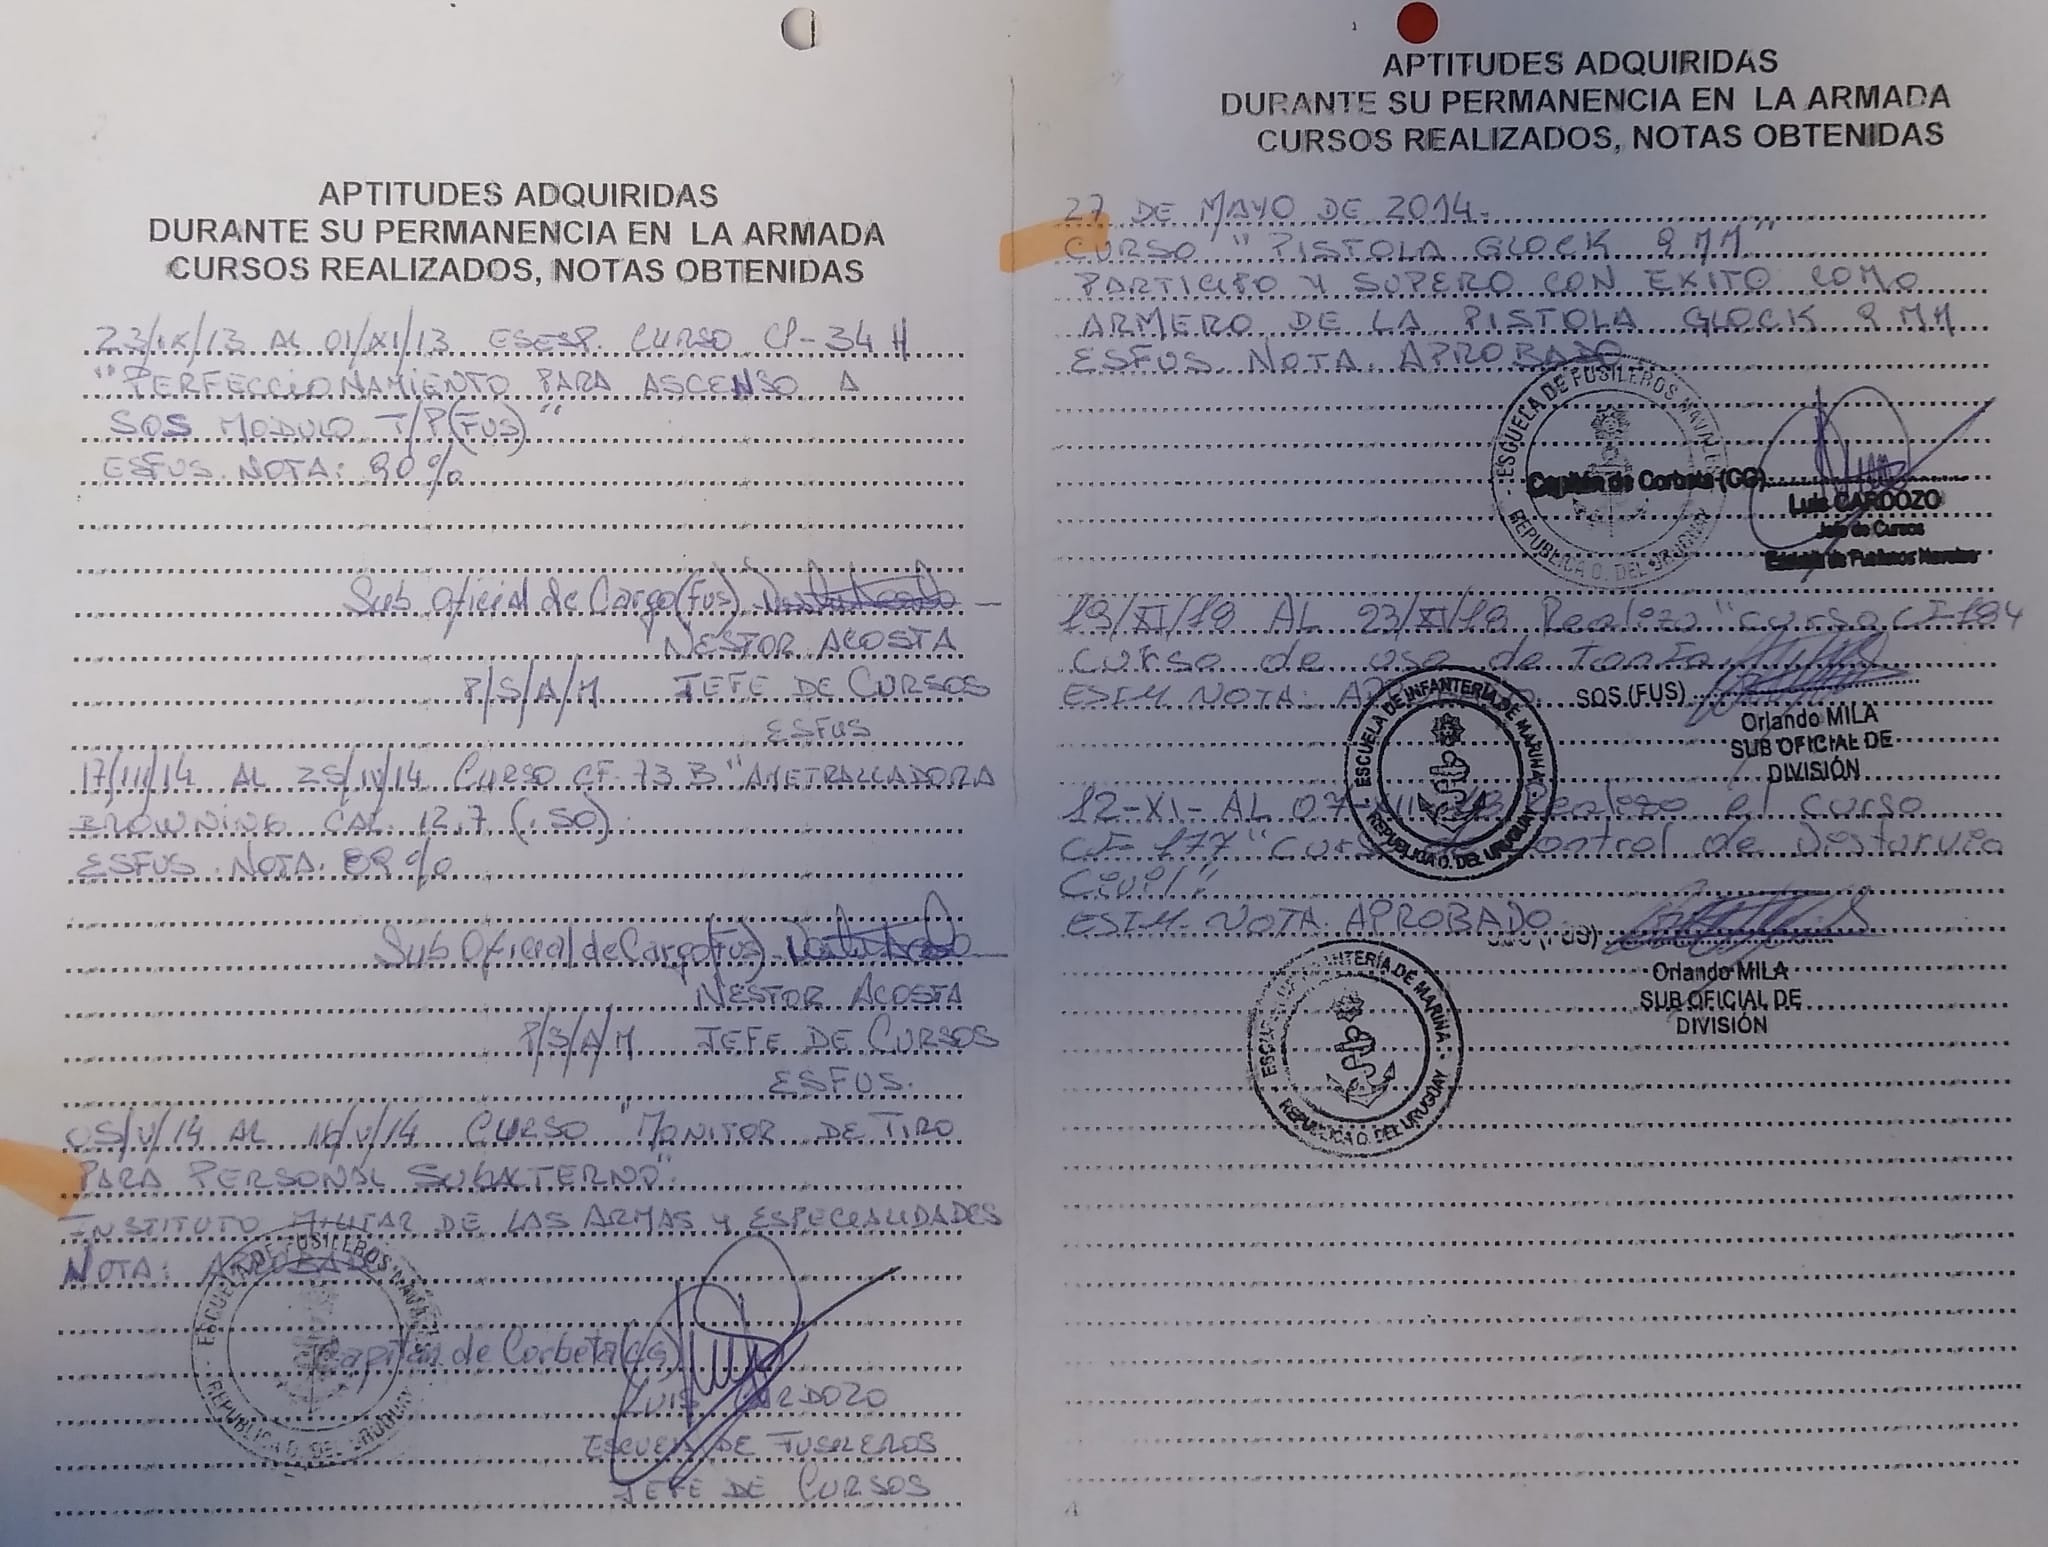 APTITUDES ADQUIRIDAS
DURANTE SU PERMANENCIA EN LA ARMADA
CURSOS REALIZADOS, NOTAS OBTENIDAS
23/IX/13 AL 01/XI/13 ESESP. CURSO CP-34 H
"PERFECCIONAMIENTO PARA ASCENSO A
SOS MODULO T/P(FUS)"
ESFUS. NOTA: 90%
Sub Oficial de Cargo (Fus)
NESTOR ACOSTA
P/S/A/M JEFE DE CURSOS
ESFUS
17/III/14 AL 25/IV/14 CURSO CF-73 B "AMETRALLADORA
BROWNING CAL. 12,7 (.50)
ESFUS. NOTA: 89%
Sub Oficial de Cargo (Fus)
NESTOR ACOSTA
P/S/A/M JEFE DE CURSOS
ESFUS.
05/V/14 AL 16/V/14 CURSO "MONITOR DE TIRO
PARA PERSONAL SUBALTERNO"
INSTITUTO MILITAR DE LAS ARMAS Y ESPECIALIDADES
NOTA: APROBADO
ESCUELA DE FUSILEROS NAVALES
REPUBLICA O. DEL URUGUAY
Capitán de Corbeta (CG)
LUIS CARDOZO
ESCUELA DE FUSILEROS
JEFE DE CURSOS
APTITUDES ADQUIRIDAS
DURANTE SU PERMANENCIA EN LA ARMADA
CURSOS REALIZADOS, NOTAS OBTENIDAS
27 DE MAYO DE 2014.
CURSO "PISTOLA GLOCK 9 MM"
PARTICIPO Y SUPERO CON EXITO COMO
ARMERO DE LA PISTOLA GLOCK 9 MM
ESFUS. NOTA. APROBADO
ESCUELA DE FUSILEROS NAVALES
REPUBLICA O. DEL URUGUAY
Capitán de Corbeta (CG)
Luis CARDOZO
Jefe de Cursos
Escuela de Fusileros Navales
19/XI/18 AL 23/XI/18 Realizo "curso CI-184
curso de uso de Tonfa
ESIM NOTA: APROBADO. SOS (FUS)
Orlando MILA
SUB OFICIAL DE
DIVISIÓN
ESCUELA DE INFANTERÍA DE MARINA
REPUBLICA O. DEL URUGUAY
12-XI- AL 07-XII-18 Realizo el curso
CI-177 "Curso de Control de Disturvio
Civil"
ESIM NOTA: APROBADO. SOS (FUS)
Orlando MILA
SUB OFICIAL DE
DIVISIÓN
ESCUELA DE INFANTERÍA DE MARINA
REPUBLICA O. DEL URUGUAY
4